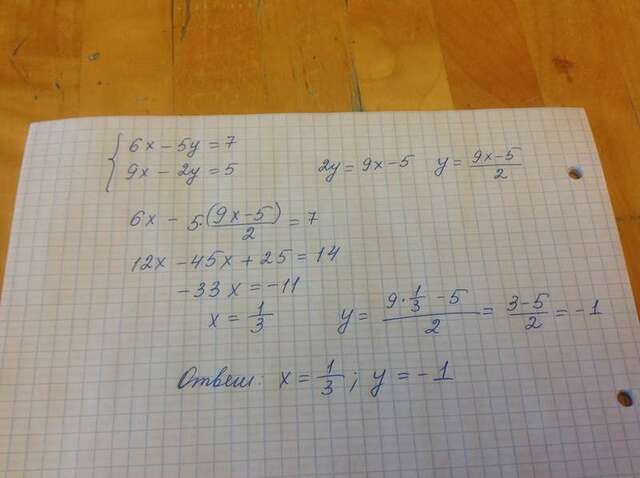 6x - 5y = 7
9x - 2y = 5
2y = 9x - 5 y = (9x-5)/2
6x - 5·(9x-5)/2 = 7
12x - 45x + 25 = 14
-33x = -11
x = 1/3 y = (9·1/3 - 5)/2 = (3-5)/2 = -1
Ответ: x = 1/3; y = -1